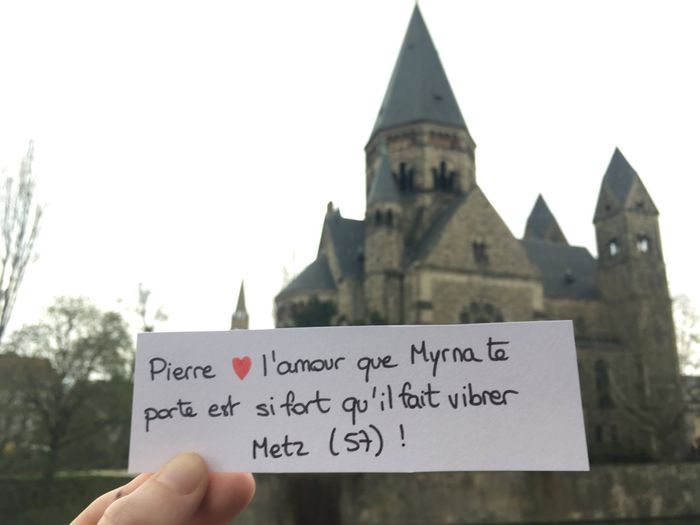 Pierre ❤ l'amour que Myrna te
porte est si fort qu'il fait vibrer
Metz (57) !